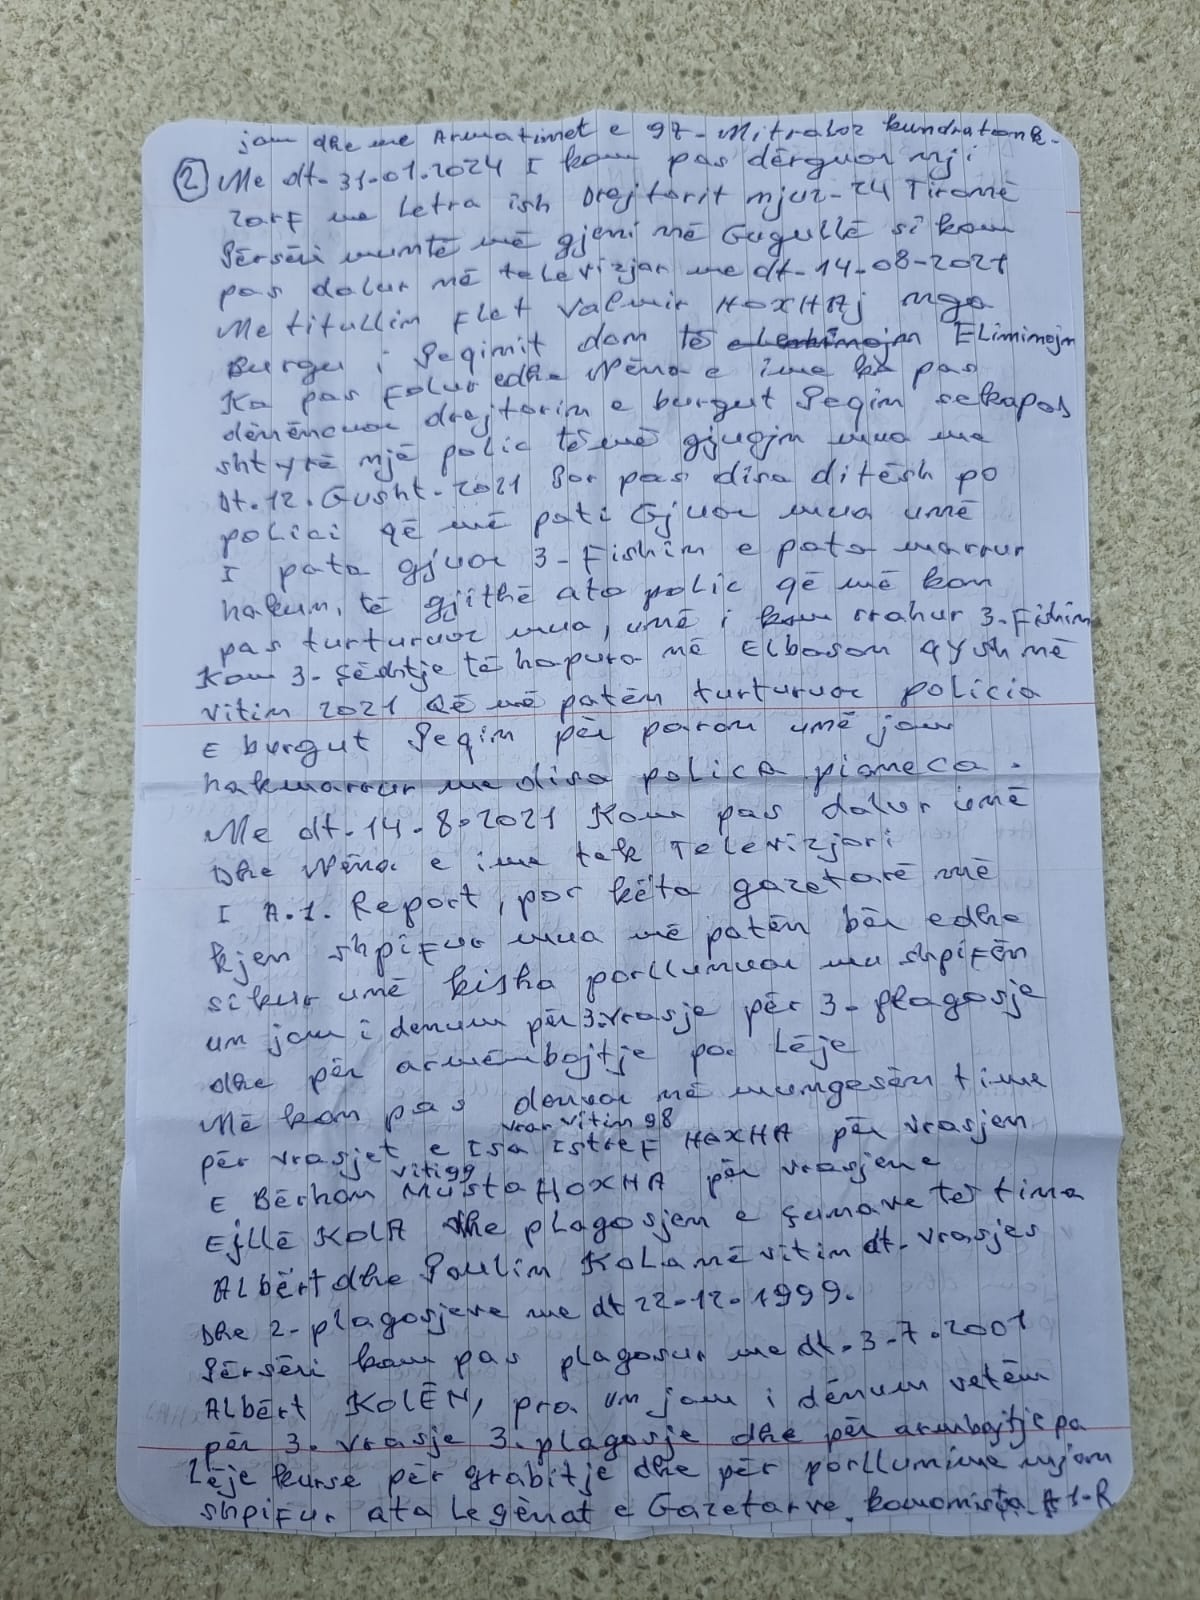 jam dhe me Armatimet e 97-Mitraloz kundratank.
② Me dt-31-01.2024 I kam pas dërguar nji
zarf me Letra ish Drejtorit mjuz-24 Tiranë
Përsëri muntë më gjeni në Gugullë si kam
pas dalur në televizjar me dt-14-08-2021
Me titullim Flet Valmir HOXHAj nga
Burgu i Peqimit dam të Elimimojn
Ka pas Folur edhe Nëna e ime ka pas
dënëncuar drejtorin e burgut Peqin se kapas
shtytë një polic të më gjuajn mua me
Dt.12.Gusht-2021 Por pas disa ditësh po
polici që më pati Gjuar mua umë
I pata gjuar 3-Fishim e pata marrur
hakun, të gjithë ato polic që më kan
pas turturuar mua, umë i kam rrahur 3-Fishim
Kam 3-Çështje të hapura në Elbasan qysh në
vitim 2021 Që më patën turturuar policia
E burgut Peqin për paran umë jam
hakmarrur me disa polica pianeca.
Me dt-14-8-2021 Kam pas dalur umë
Dhe Nëna e ime tek Televizjari
I A.1. Report, por këta gazetarë më
kjen shpifur mua më patën bër edhe
sikur umë kisha porllunuar mu shpifën
un jam i denum për 3.vrasje për 3-plagosje
dhe për armëmbajtje pa Lëje
Më kan pas denuar në mungesën time
për vrasjet e Isa Istref HOXHA vrar vitim 98 për vrasjen
E Bërhan Musta HOXHA viti 99 për vrasjene
Ejllë KolA dhe plagosjen e çunave tet tina
Albërt dhe Paulin Kola në vitim dt-vrasjes
Dhe 2-plagosjeve me dt 22-12-1999.
Përsëri kam pas plagosur me dt-3-7-2001
Albërt KolËN, pra un jam i dënum vetëm
për 3. vrasje 3. plagosje dhe për armbajtje pa
Lëje kurse për grabitje dhe për porllunime mjan
shpifur ata Legënat e Gazetarve komonista A1-R